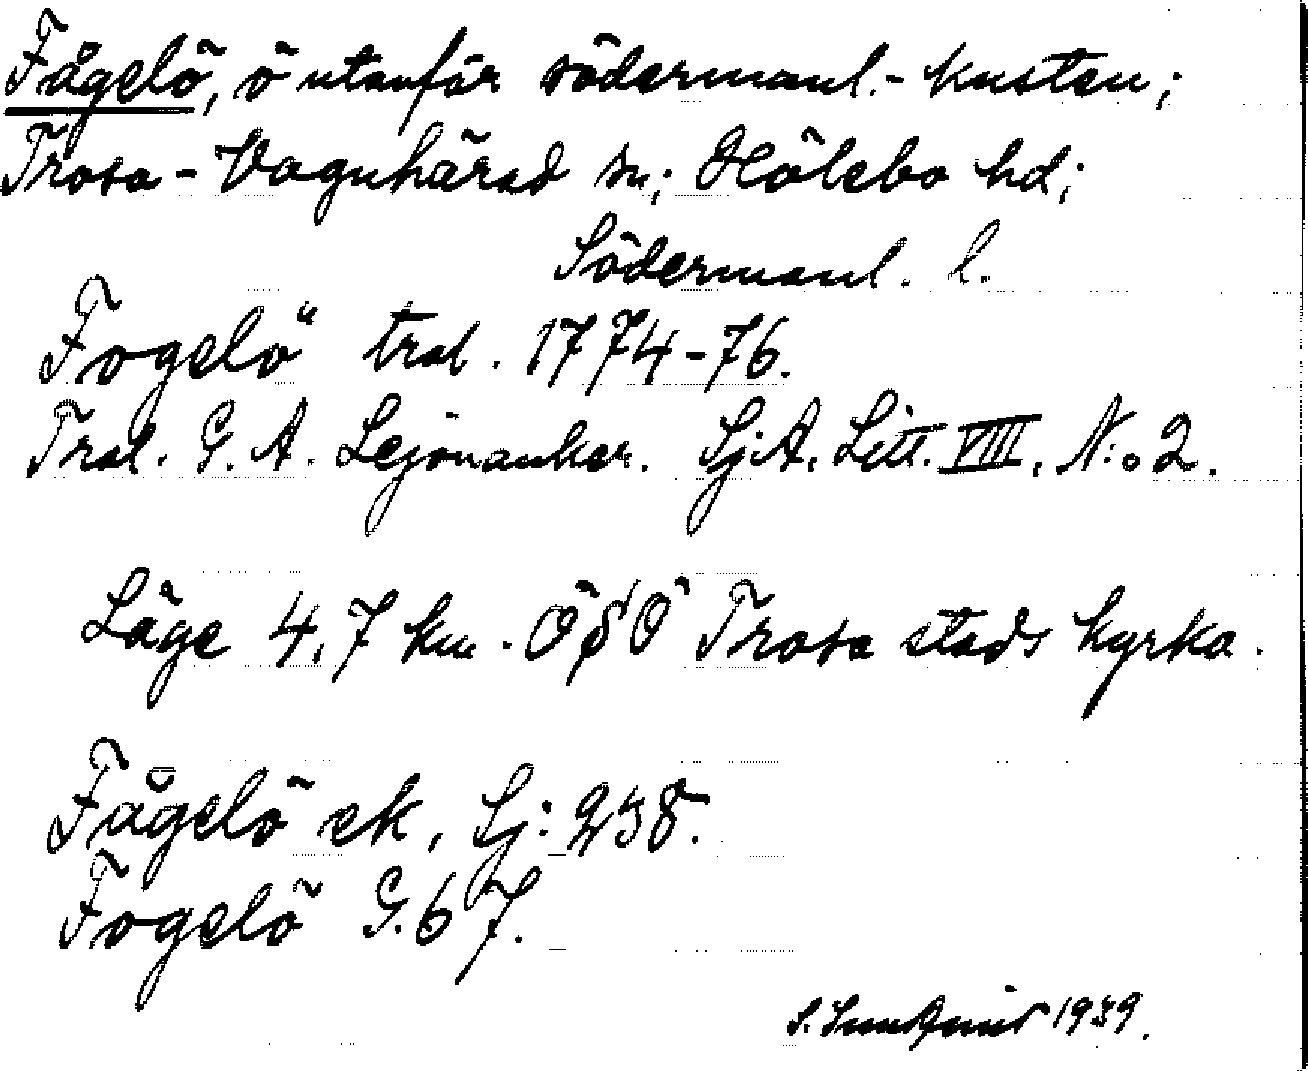 Fågelö, ö utanför södermanl.-kusten;
Trosa-Vagnhärad sn; Hölebo hd;
Södermanl. l.
Fogelö tral. 1774-76.
Tral. G. A. Lejonanker. SjA. Litt. VIII. N:o 2.
Läge 4,7 km. OSO Trosa stads kyrka.
Fågelö ek, Sj: 238.
Fogelö G. 67.
S. Sundqvist 1939.